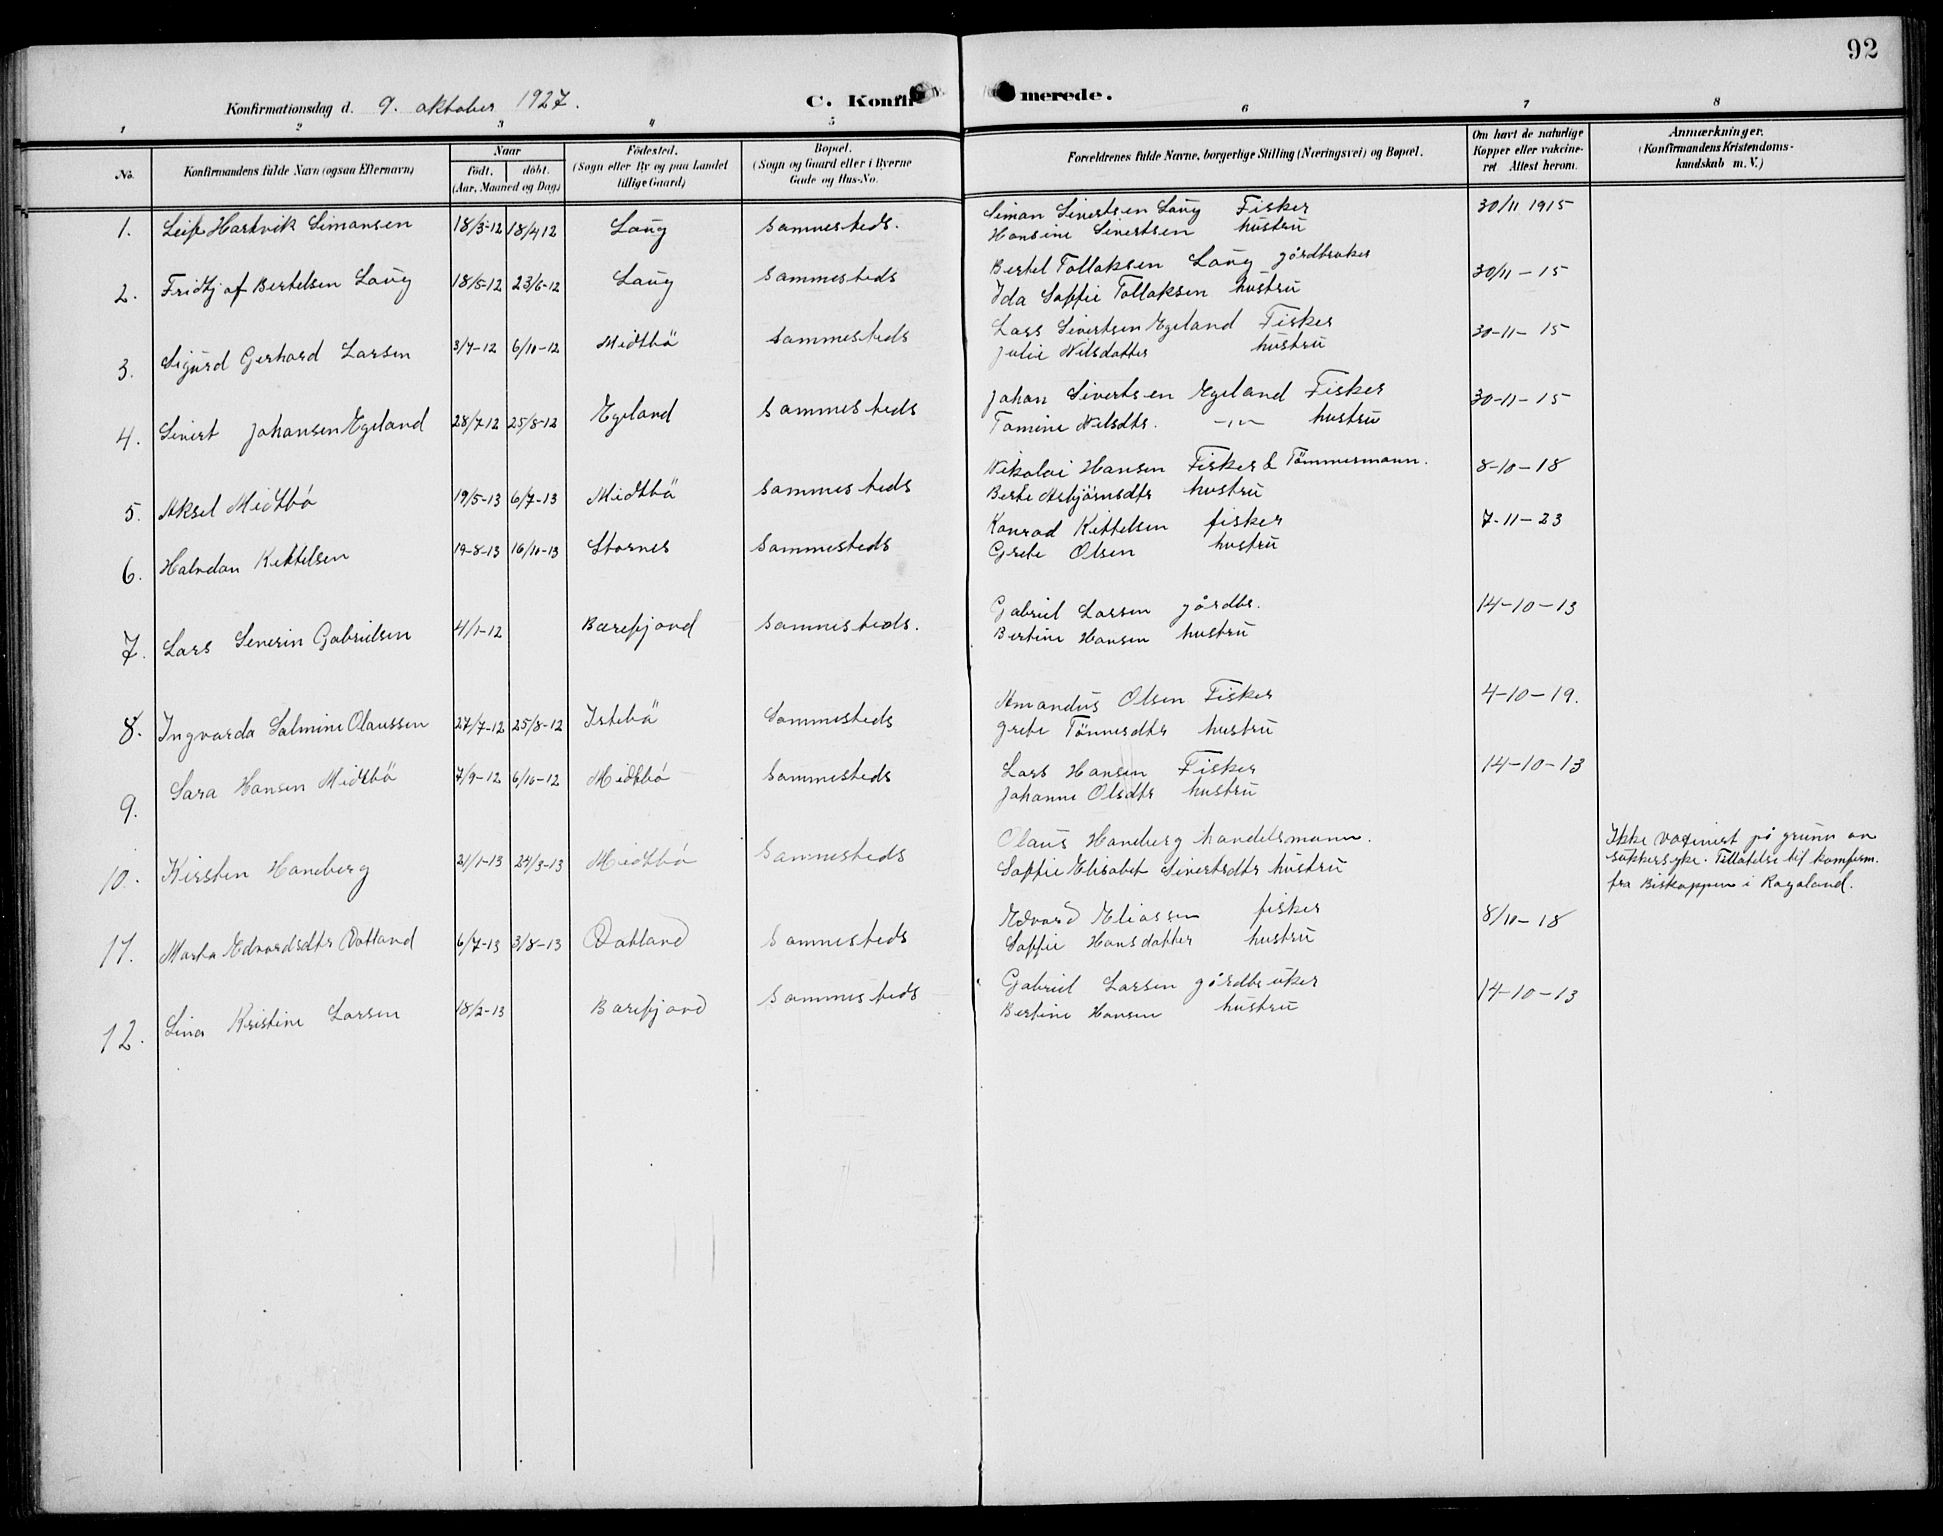 92
Konfirmationsdag d. 9. oktober 1927.
C. Konfir merede.
1 2 3 4 5 6 7 8
No. Konfirmandens fulde Navn (ogsaa Efternavn)
Naar
Födt. döbt.
(Aar, Maaned og Dag.)
Födested.
(Sogn eller By og paa Landet
tillige Gaard)
Bopæl.
(Sogn og Gaard eller i Byerne
Gade og Hus-No.
Forældrenes fulde Navne, borgerlige Stilling (Næringsvei) og Bopæl.
Om havt de naturlige
Kopper eller vakcine-
ret Attest herom.
Anmærkninger.
(Konfirmandens Kristendoms-
kundskab m. V.)
1. Leif Hartvik Simonsen 18/3-12 18/4 12 Laug Sammesteds. Simon Sivertsen Laug Fisker 30/11 1915
Hansine Sivertsen hustru
2. Fridtjof Bertelsen Laug 18/5-12 23/6-12 Laug Sammesteds Bertel Tollaksen Laug gårdbruker 30/11-15
Ida Soffie Tollaksen hustru
3. Sigurd Gerhard Larsen 3/7-12 6/10-12 Midtbö Sammesteds Lars Sivertsen Egeland Fisker 30-11-15
Julie Nilsdatter hustru
4. Sivert Johansen Egeland 28/7-12 25/8-12 Egeland Sammesteds Johan Sivertsen Egeland Fisker 30-11-15
Tomine Nilsdtr. -"- hustru
5. Aksel Midtbö 19/5-13 6/7-13 Midtbö Sammesteds Nikolai Hansen Fisker & Tömmermann. 8-10-18
Berte Asbjörnsdtr hustru
6. Halvdan Kettelsen 19-8-13 16/10-13 Stornes Sammesteds Konrad Kettelsen fisker 7-11-23
Grete Olsen hustru
7. Lars Severin Gabrielsen 4/1-12 Barefjord Sammesteds. Gabriel Larsen gårdbr. 14-10-13
Bertine Hansen hustru
8. Ingvarda Salmine Olaussen 27/7-12 25/8-12 Istebö Sammesteds Amandus Olsen Fisker 4-10-19.
Grete Tönnesdtr hustru
9. Sara Hansen Midtbö 7/9-12 6/10-12 Midtbö Sammesteds Lars Hansen Fisker 14-10-13
Johanne Olsdtr hustru
10. Kirsten Haneberg 21/1-13 24/3-13 Midtbö Sammesteds Olaus Haneberg handelsmann. Ikke vaxinert på grunn av
Soffie Elisabet Sivertsdtr hustru sukkersyke. Tillatelse til konfirm.
fra Biskoppen i Rogaland.
11. Marta Edvardsdtr Votland 6/7-13 3/8-13 Votland Sammesteds Edvard Eliassen fisker 8/10-18
Soffie Hansdatter hustru
12. Lina Kristine Larsen 18/2-13 Barefjord Sammesteds Gabriel Larsen gårdbruker 14-10-13
Bertine Hansen hustru